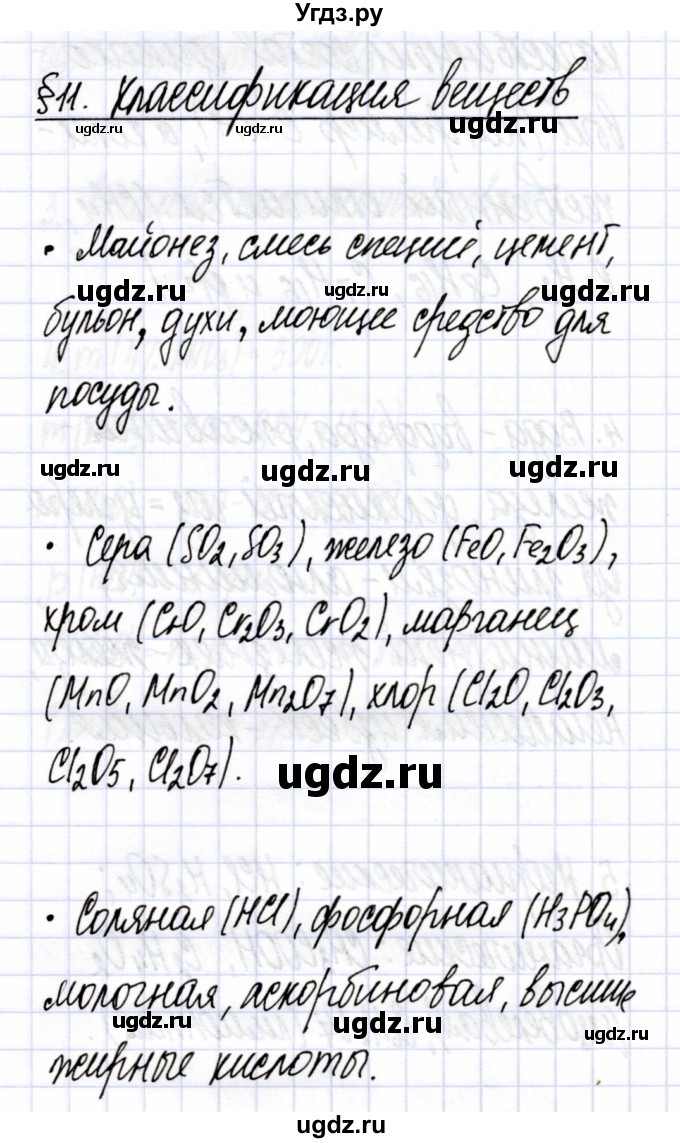 Угдз.ру
§11. Классификация веществ
ugdz.ru ugdz.ru ugdz.ru
• Майонез, смесь специй, цемент,
ugdz.ru ugdz.ru ugdz.ru
бульон, духи, моющее средство для
посуды.
ugdz.ru ugdz.ru ugdz.ru
• Сера (SO₂, SO₃), железо (FeO, Fe₂O₃),
хром (CrO, Cr₂O₃, CrO₂), марганец
(MnO, MnO₂, Mn₂O₇), хлор (Cl₂O, Cl₂O₃,
Cl₂O₅, Cl₂O₇).
ugdz.ru
• Соляная (HCl), фосфорная (H₃PO₄),
молочная, аскорбиновая, высшие
ugdz.ru ugdz.ru ugdz.ru
жирные кислоты.
ugdz.ru